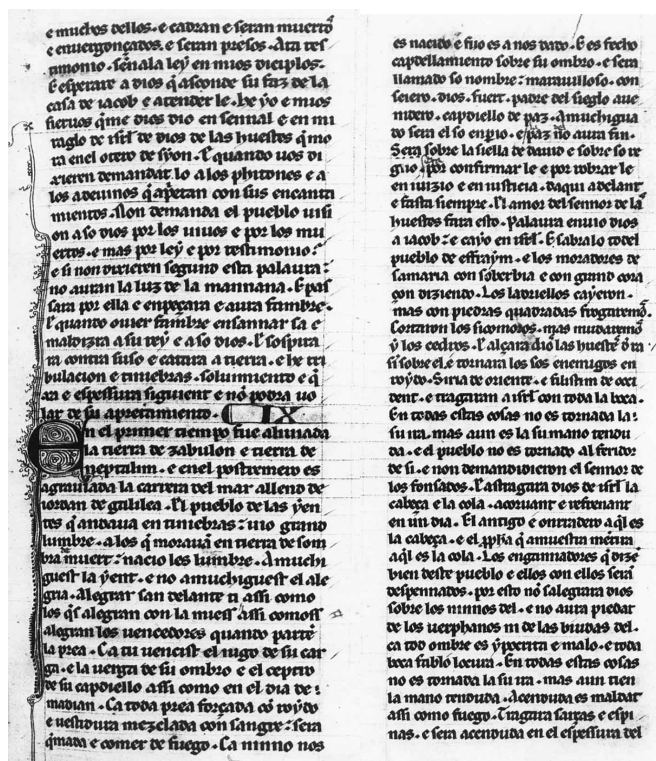 e muchos dellos · e cadran e seran muertõ
e enuergonçados · e seran presos · Ata tes
timonio · señala ley en mios diciplos ·
E esperare a dios q̃ asconde su faz de la
casa de iacob e atender le · he yo e mios
sieruos q̃me dios dio en sennal e en mi
raglo de isrł de dios de las huestes q̃ mo
ra enel otero de syon · E quando uos di
xieren demandat lo a los phitones e a
los adeuinos q̃ apetan con sus encanta
mientos · Non demanda el pueblo uisi
on a so dios por los uiuos e por los mu
ertos · e mas por ley e por testimonio :
e si non dixieren segund esta palaura :
no auran la luz de la mannana · E pas
sara por ella e enpeçara e aura fambre ·
E quando ouier fambre ensannar sa e
maldizra a su rey e a so dios · E sospira
ra contra suso e catara a tierra · e he tri
bulacion e tiniebras · soluimiento e q̃
xa e espessura siguient e nõ podra uo
lar de su apretamiento · IX
En el primer tiempo fue aliuiada
la tierra de zabulon e tierra de
neptalim · e enel postremero es
agrauiada la carrera del mar allend de
iordan de galilea · El pueblo de las yen
tes q̃ andaua en tiniebras : uio grand
lumbre · a los q̃ morauã en tierra de som
bra de muert : nacio les lumbre · Amuchi
guest la yent · e no amuchiguest el ale
gria · Alegrar san delante ti assi como
los q̃s alegran con la miess assi comoss
alegran los uencedores quando partẽ
la prea · Ca tu uencist el iugo de su car
ga · e la uerga de su ombro e el ceptro
de su capdiello assi como en el dia de :
madian · Ca toda prea forçada cõ roydo
e uestidura mezclada con sangre : sera
q̃mada e comer de fuego · Ca ninno nos
es nacido e fijo es a nos dado · E es fecho
capdellamiento sobre su ombro · e sera
llamado so nombre : marauilloso · con
seiero · dios · fuert · padre del sieglo aue
nidero · capdiello de paz · amuchigua
do sera el so enp̃io · e paz nõ aura fin ·
Sera sobre la siella de dauid e sobre so re
gno · por confirmar le e por robrar le
en iuizio e en iusticia · daqui adelant
e fasta siempre · El amor del sennor de la
huestes fara esto · Palaura enuio dios
a iacob : e cayo en isrł · E sabralo todel
pueblo de effraym · e los moradores de
samaria con soberbia e con grand cora
çon diziendo · Los ladriellos cayeron ·
mas con piedras quadradas frogaremõ ·
Cortaron los sicomoros · mas mudaremõ
y los cedros · E alçara dio las huestẽ d̃ ra
si sobre el · e tornara los sos enemigos en
roydo · Siria de oriente · e filistim de occi
dent · e tragaran a isrł con toda la boca ·
En todas estas cosas no es tornada la :
su ira · mas aun es la su mano tendu
da · e el pueblo no es tornado al feridor
de si · e non demandidieron el sennor de
los fonsados · E astragara dios de isrł la
cabeça e la cola · acoruant e refrenant
en un dia · El antigo e onrradero aq̃l es
la cabeça · e el pph̃a q̃ amuestra mẽtira
aq̃l es la cola · Los engannadores q̃ dizẽ
bien deste pueblo e ellos con ellos será
despennados · por esto nõ salegrara dios
sobre los ninnos del · e no aura piedat
de los uerphanos ni de las biudas del ·
ca tod ombre es ypocrita e malo · e toda
boca fablo locura · En todas estas cosas
no es tornada la su ira · mas aun tien
la mano tenduda · Acenduda es maldat
assi como fuego · Tragara sarças e espi
nas · e sera acenduda en el espessura del